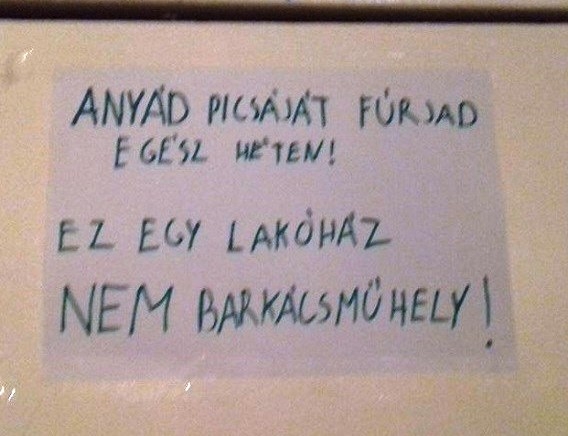 ANYÁD PICSÁJÁT FÚRJAD
EGÉSZ HÉTEN!
EZ EGY LAKÓHÁZ
NEM BARKÁCSMŰHELY!